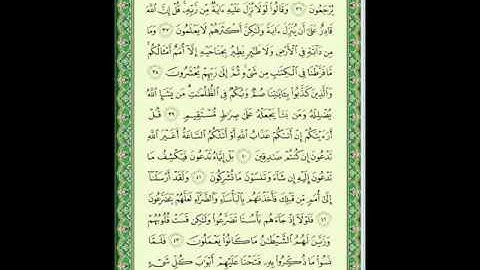 يُرْجَعُونَ ٣٦ وَقَالُوا۟ لَوْلَا نُزِّلَ عَلَيْهِ ءَايَةٌ مِّن رَّبِّهِۦ قُلْ إِنَّ ٱللَّهَ
قَادِرٌ عَلَىٰٓ أَن يُنَزِّلَ ءَايَةً وَلَٰكِنَّ أَكْثَرَهُمْ لَا يَعْلَمُونَ ٣٧ وَمَا
مِن دَآبَّةٍ فِى ٱلْأَرْضِ وَلَا طَٰٓئِرٍ يَطِيرُ بِجَنَاحَيْهِ إِلَّآ أُمَمٌ أَمْثَالُكُم
مَّا فَرَّطْنَا فِى ٱلْكِتَٰبِ مِن شَىْءٍ ثُمَّ إِلَىٰ رَبِّهِمْ يُحْشَرُونَ ٣٨
وَٱلَّذِينَ كَذَّبُوا۟ بِـَٔايَٰتِنَا صُمٌّ وَبُكْمٌ فِى ٱلظُّلُمَٰتِ مَن يَشَإِ ٱللَّهُ
يُضْلِلْهُ وَمَن يَشَأْ يَجْعَلْهُ عَلَىٰ صِرَٰطٍ مُّسْتَقِيمٍ ٣٩ قُلْ
أَرَءَيْتَكُمْ إِنْ أَتَىٰكُمْ عَذَابُ ٱللَّهِ أَوْ أَتَتْكُمُ ٱلسَّاعَةُ أَغَيْرَ ٱللَّهِ
تَدْعُونَ إِن كُنتُمْ صَٰدِقِينَ ٤٠ بَلْ إِيَّاهُ تَدْعُونَ فَيَكْشِفُ مَا
تَدْعُونَ إِلَيْهِ إِن شَآءَ وَتَنسَوْنَ مَا تُشْرِكُونَ ٤١ وَلَقَدْ أَرْسَلْنَآ
إِلَىٰٓ أُمَمٍ مِّن قَبْلِكَ فَأَخَذْنَٰهُم بِٱلْبَأْسَآءِ وَٱلضَّرَّآءِ لَعَلَّهُمْ يَتَضَرَّعُونَ
٤٢ فَلَوْلَآ إِذْ جَآءَهُم بَأْسُنَا تَضَرَّعُوا۟ وَلَٰكِن قَسَتْ قُلُوبُهُمْ
وَزَيَّنَ لَهُمُ ٱلشَّيْطَٰنُ مَا كَانُوا۟ يَعْمَلُونَ ٤٣ فَلَمَّا
نَسُوا۟ مَا ذُكِّرُوا۟ بِهِۦ فَتَحْنَا عَلَيْهِمْ أَبْوَٰبَ كُلِّ شَىْءٍ